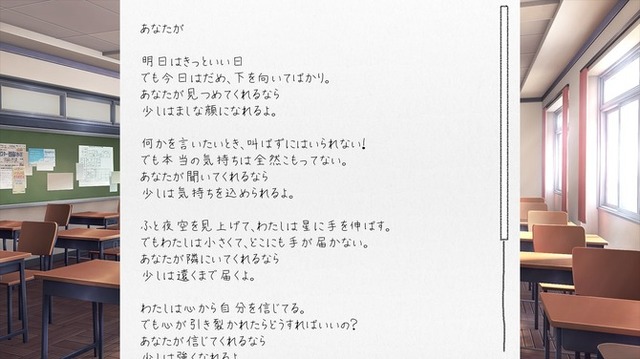 あなたが
明日はきっといい日
でも今日はだめ、下を向いてばかり。
あなたが見つめてくれるなら
少しはましな顔になれるよ。
何かを言いたいとき、叫ばずにはいられない!
でも本当の気持ちは全然こもってない。
あなたが聞いてくれるなら
少しは気持ちを込められるよ。
ふと夜空を見上げて、わたしは星に手を伸ばす。
でもわたしは小さくて、どこにも手が届かない。
あなたが隣にいてくれるなら
少しは遠くまで届くよ。
わたしは心から自分を信じてる。
でも心が引き裂かれたらどうすればいいの?
あなたが信じてくれるなら
少しは強くなれるよ